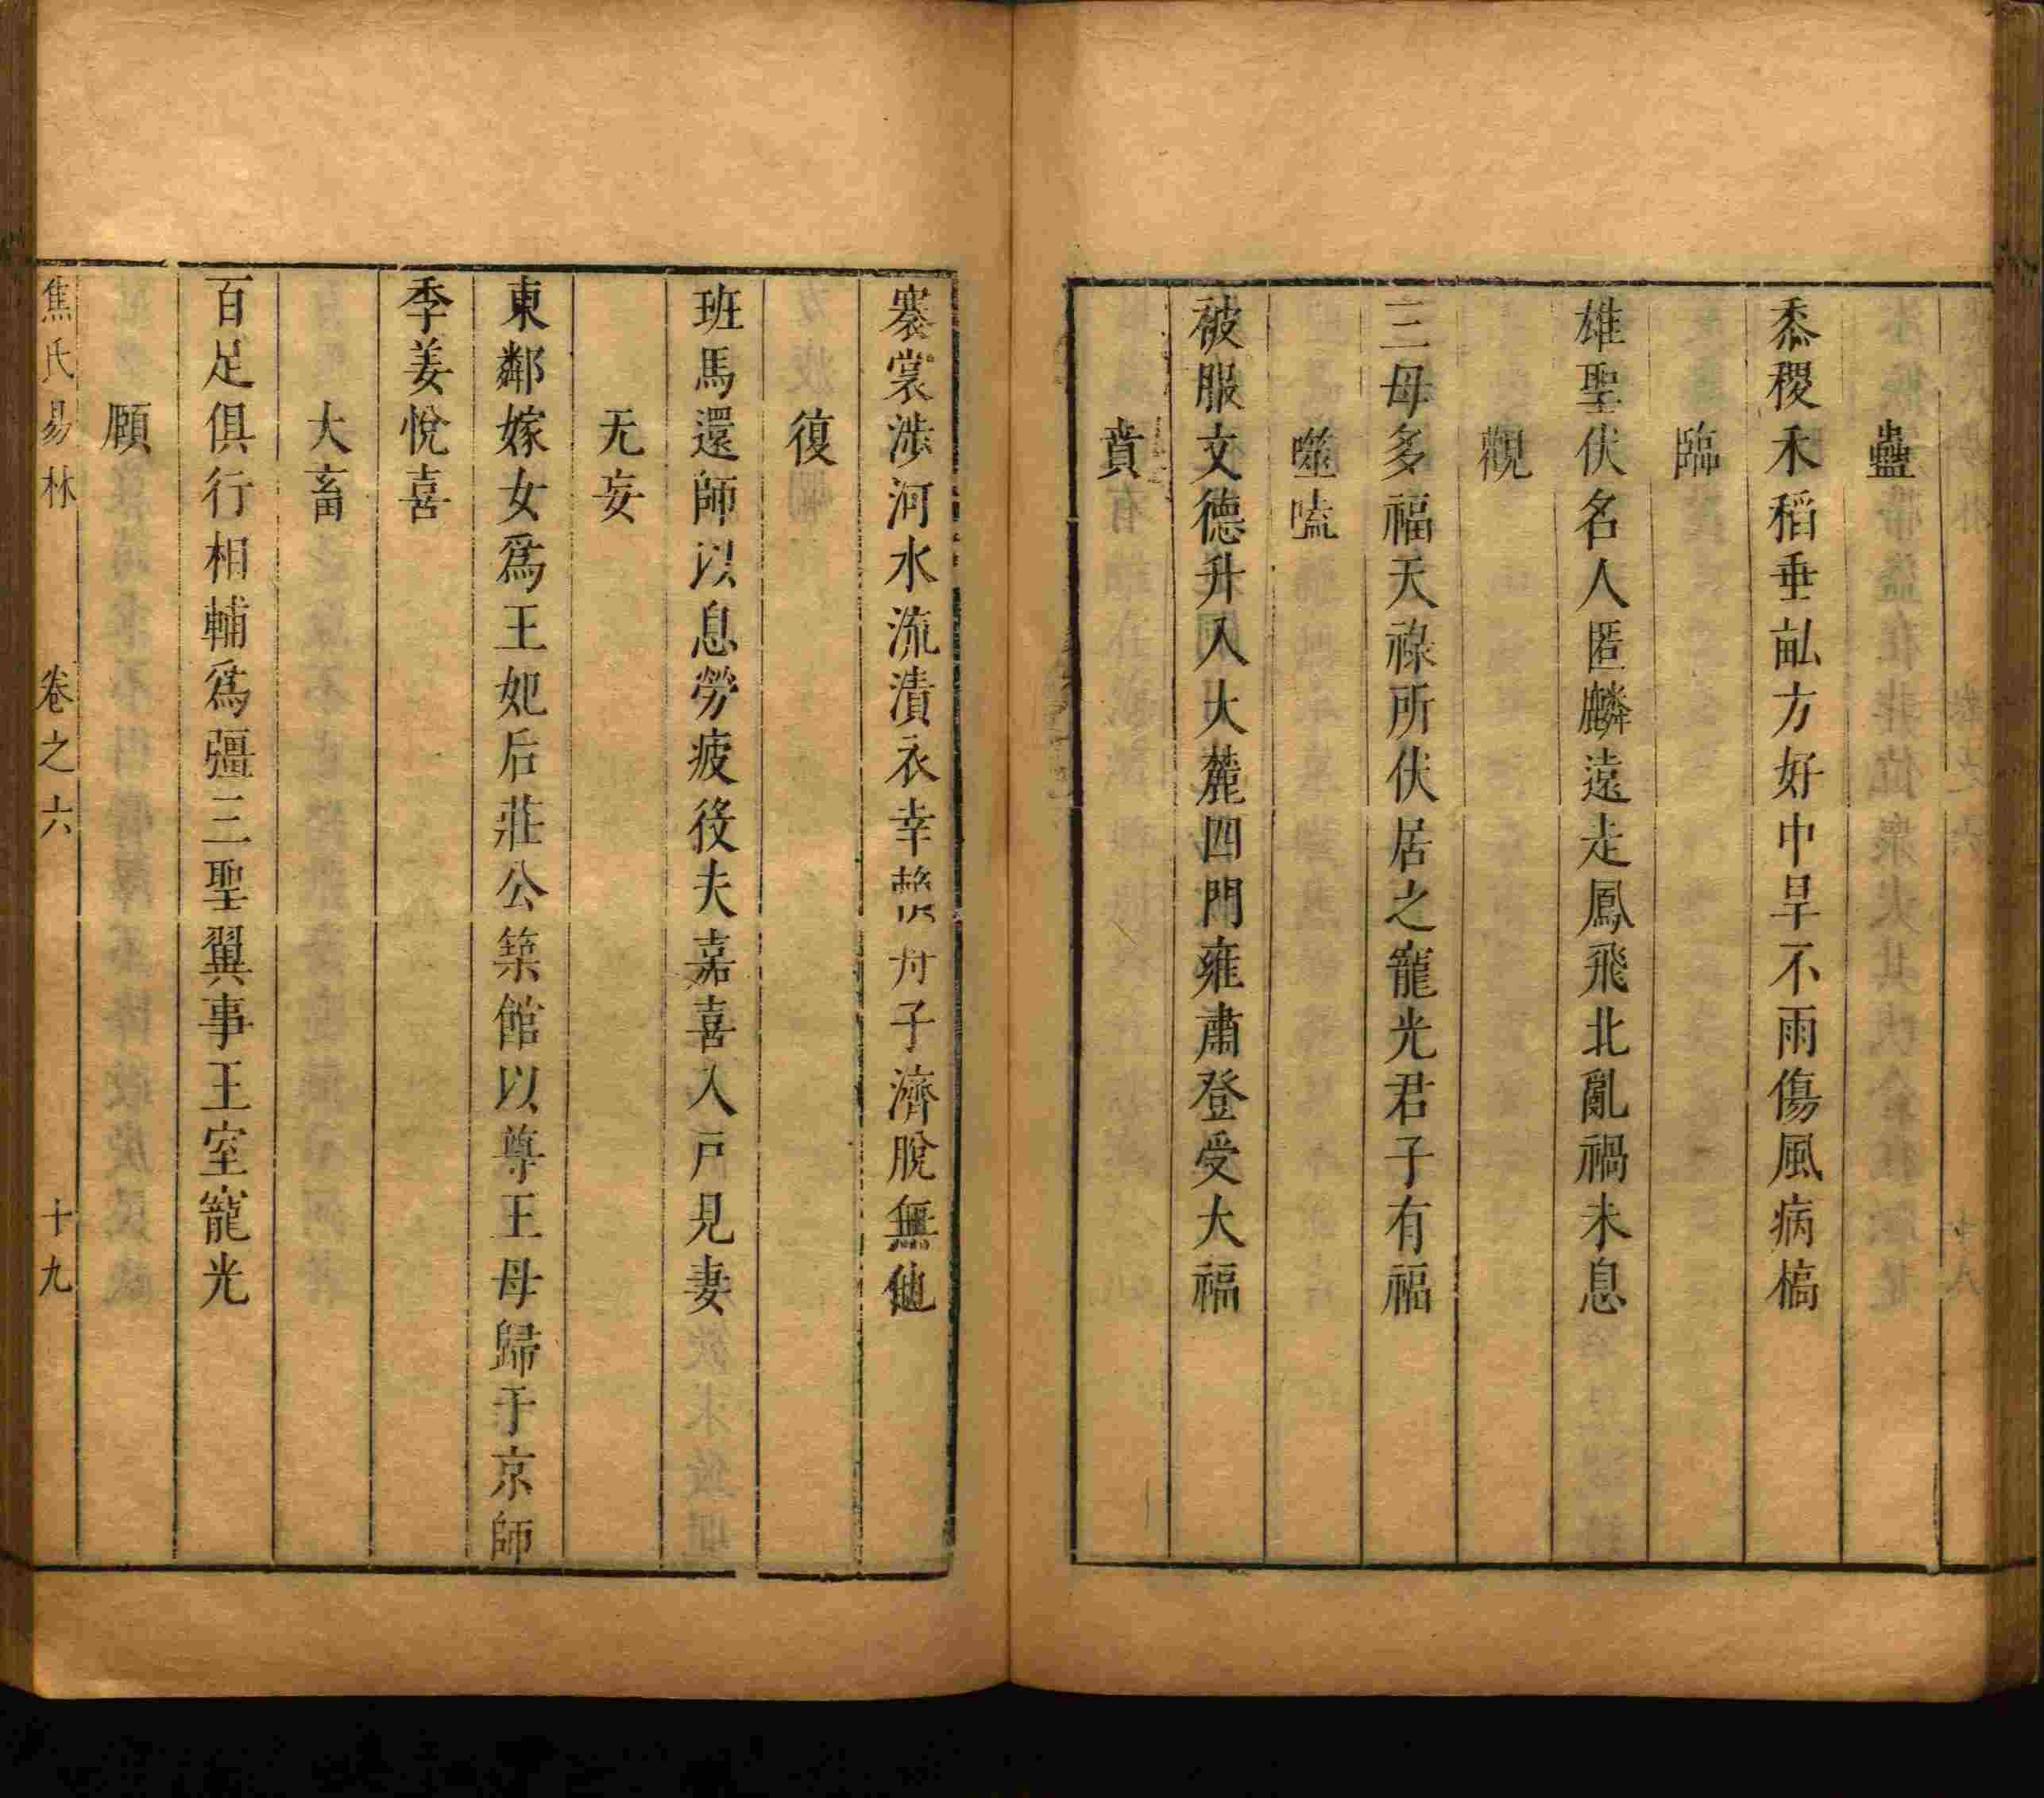 蠱
黍稷禾稻垂畝方好中旱不雨傷風病槁
臨
雄聖伏名人匿麟遠走鳳飛北亂禍未息
觀
三母多福天祿所伏居之寵光君子有福
噬嗑
被服文德升入大麓四門雍肅登受大福
賁
褰裳涉河水流漬衣幸賴 舟子濟脫無他
復
班馬還師以息勞疲役夫嘉喜入戸見妻
无妄
東鄰嫁女爲王妃后莊公築館以尊王母歸于京師
季姜悅喜
大畜
百足俱行相輔爲彊三聖翼事王室寵光
頤
焦氏易林 卷之六 十九